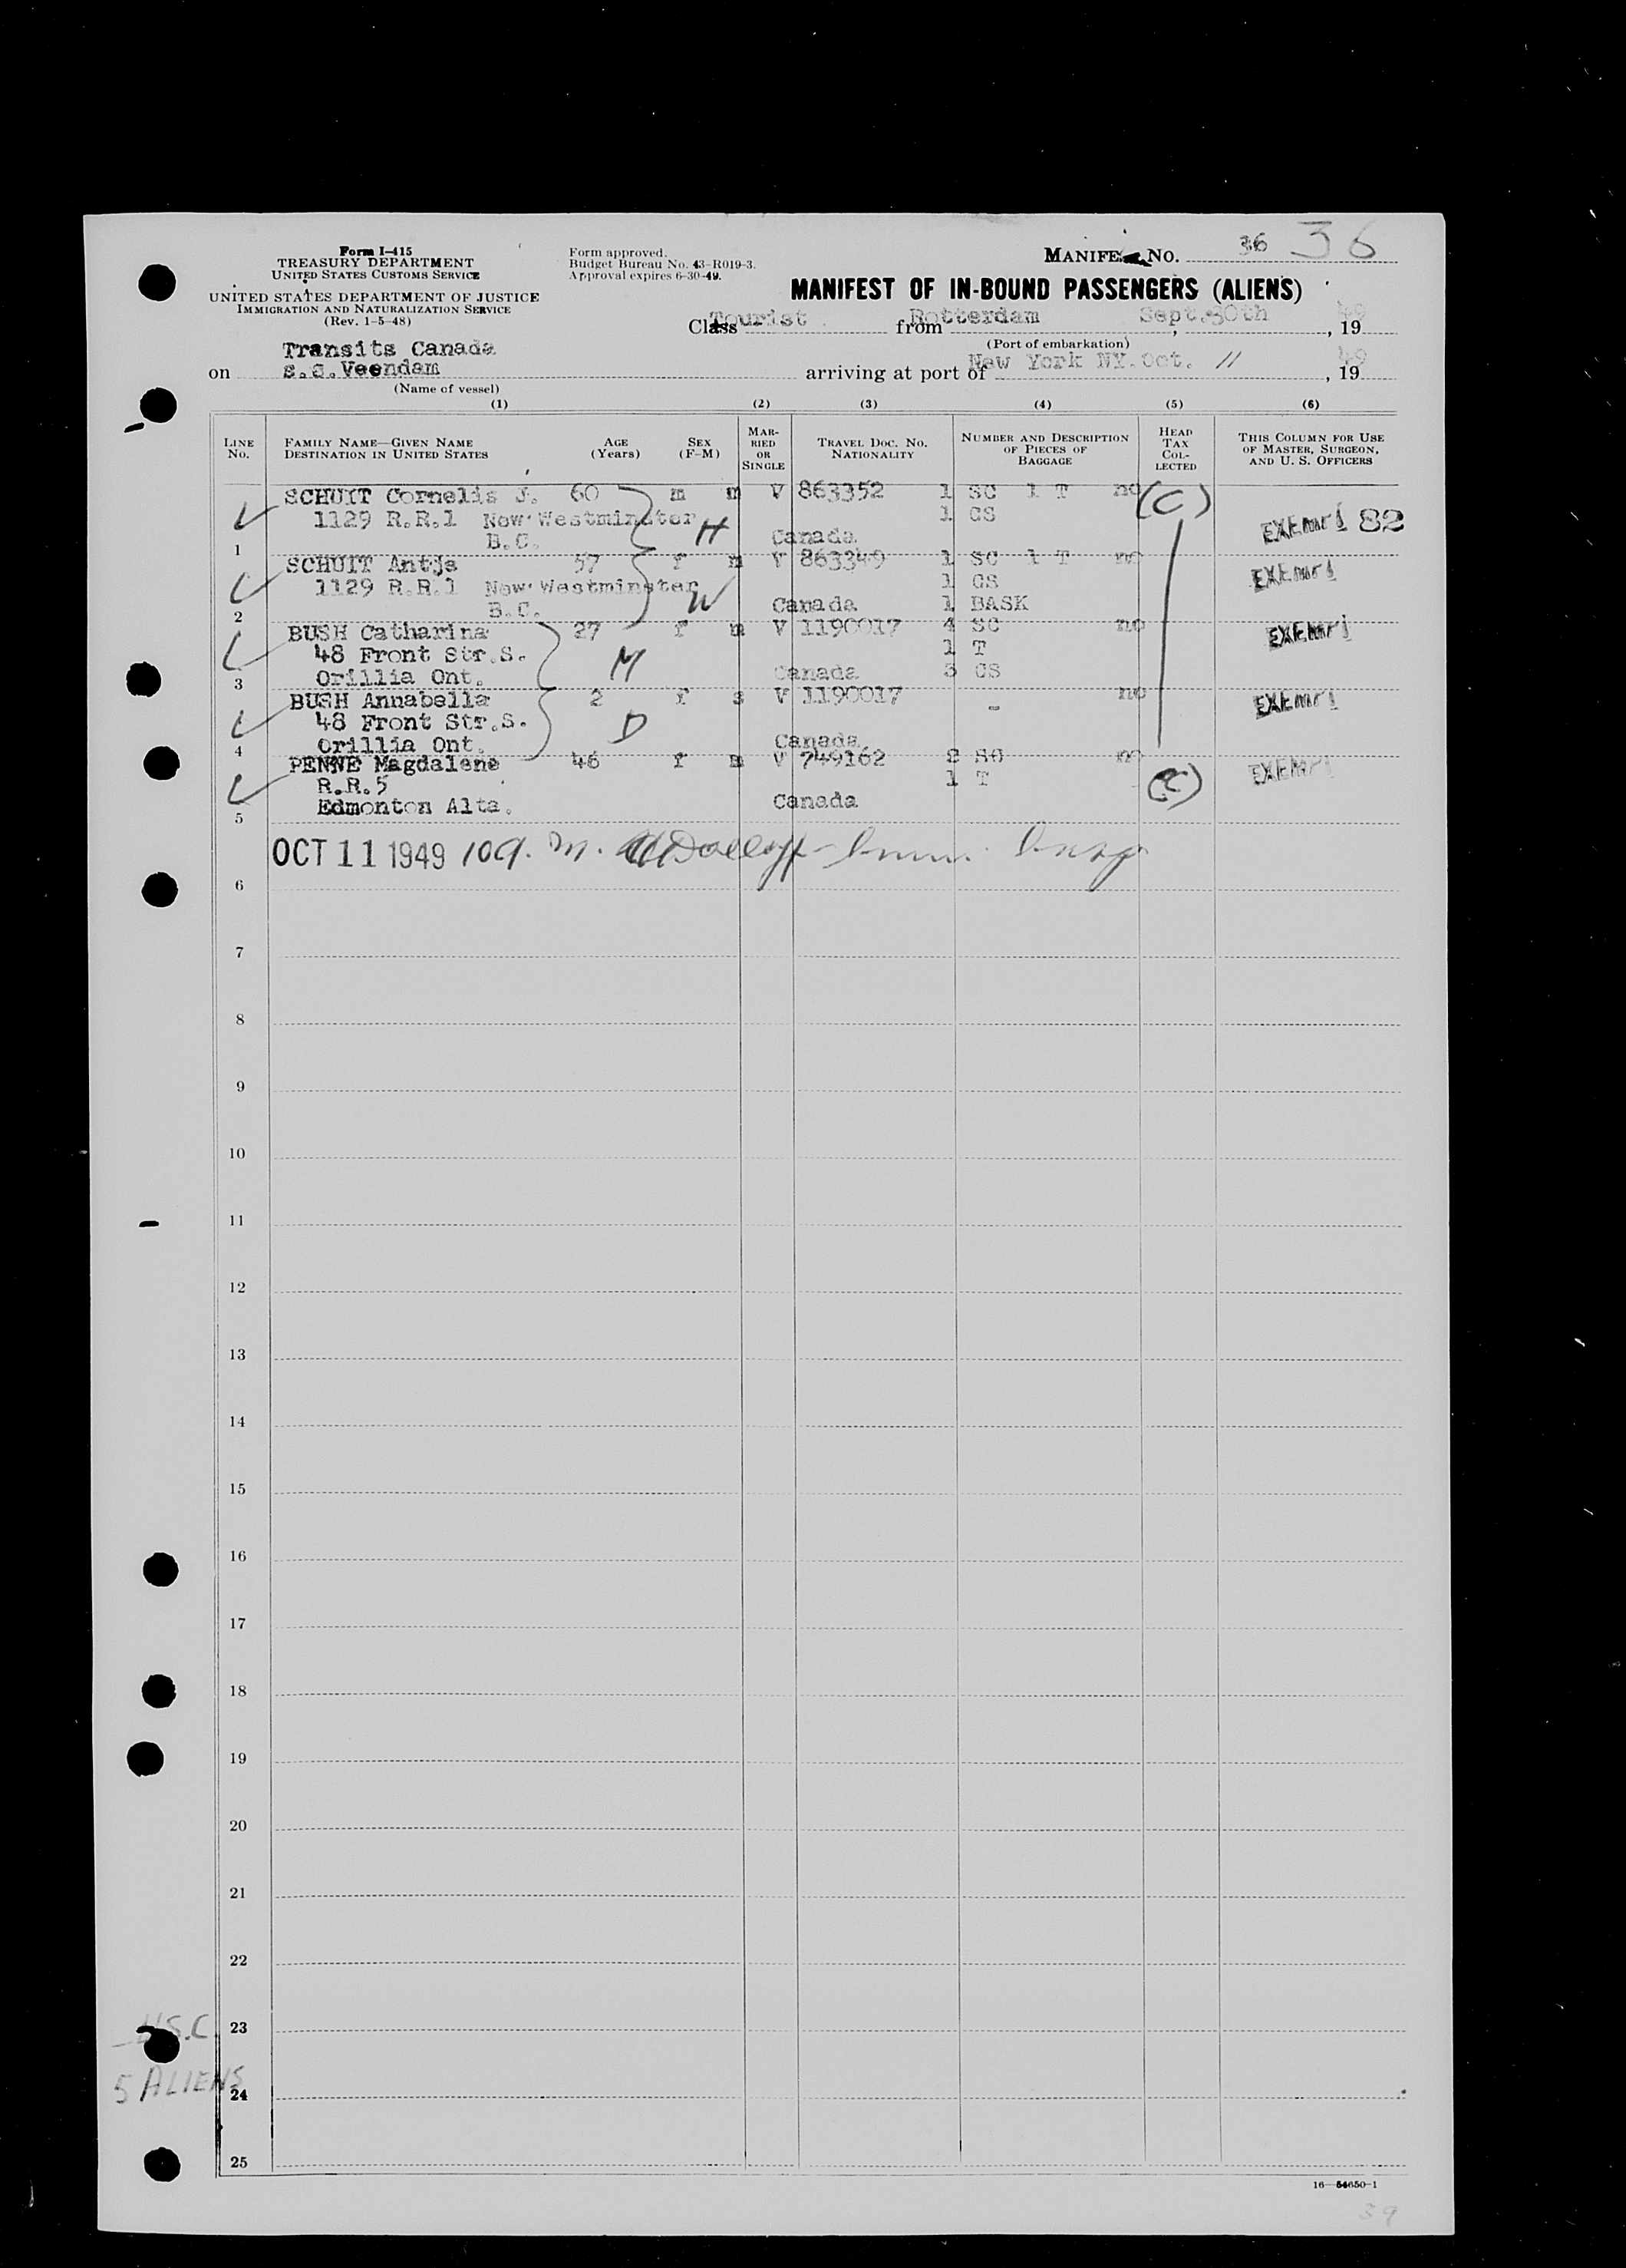 Form I-415
TREASURY DEPARTMENT
UNITED STATES CUSTOMS SERVICE
UNITED STATES DEPARTMENT OF JUSTICE
IMMIGRATION AND NATURALIZATION SERVICE
(Rev. 1-5-48)
Form approved.
Budget Bureau No. 43-R019-3.
Approval expires 6-30-49.
MANIFEST No. 36 36
MANIFEST OF IN-BOUND PASSENGERS (ALIENS)
Class Tourist from Rotterdam, Sept. 30th, 1949
(Port of embarkation)
Transits Canada
on s.s. Veendam arriving at port of New York NY. Oct. 11, 1949
(Name of vessel)
(1) (2) (3) (4) (5) (6)
LINE No. FAMILY NAME—GIVEN NAME DESTINATION IN UNITED STATES AGE (Years) SEX (F-M) MARRIED OR SINGLE TRAVEL DOC. No. NATIONALITY NUMBER AND DESCRIPTION OF PIECES OF BAGGAGE HEAD TAX COLLECTED THIS COLUMN FOR USE OF MASTER, SURGEON, AND U. S. OFFICERS
SCHUIT Cornelis J. 60 m m V 863352 1 SC 1 T no (C)
1129 R.R.1 New Westminster 1 CS EXEMPT 82
1 B.C. H Canada
SCHUIT Antje 57 f m V 863349 1 SC 1 T no
1129 R.R.1 New Westminster 1 CS EXEMPT
2 B.C. W Canada 1 BASK
BUSH Catharina 27 f m V 1190017 4 SC no EXEMPT
48 Front Str.S. M 1 T
3 Orillia Ont. Canada 3 CS
BUSH Annabella 2 f s V 1190017 - no EXEMPT
48 Front Str.S. D
4 Orillia Ont. Canada
PENNE Magdalene 46 f m V 749162 2 SC no EXEMPT
R.R.5 1 T (C)
5 Edmonton Alta. Canada
OCT 11 1949
6
7
8
9
10
11
12
13
14
15
16
17
18
19
20
21
22
U.S.C. 23
5 ALIENS 24
25
16—54650-1
39